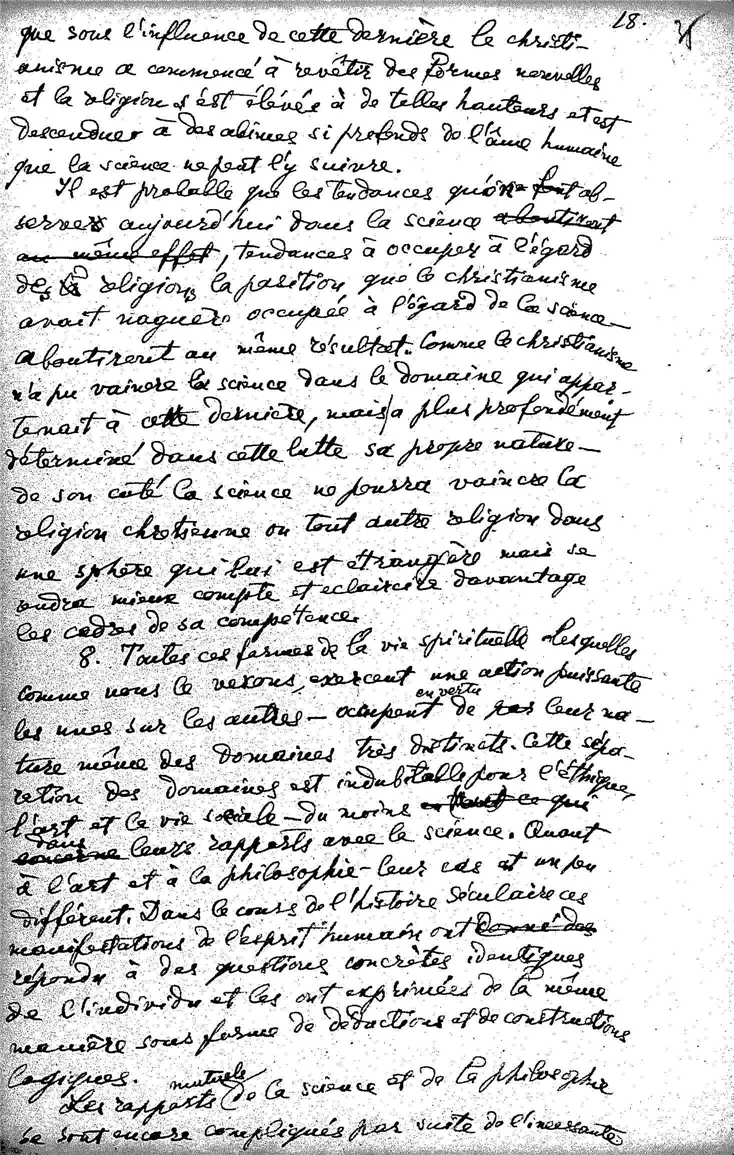 18.
que sous l'influence de cette dernière le christi-
anisme a commencé à revêtir des formes nouvelles
et la religion s'est élévée à de telles hauteurs et est
descendue à des abimes si profonds de l'âme humaine
que la science ne peut l'y suivre.
Il est probable que les tendances qu'on fait ob-
server aujourd'hui dans la science aboutiront
au même effet, tendances à occuper à l'égard
des religions la position que le christianisme
avait naguère occupée à l'égard de la science —
aboutiront au même résultat. Comme le christianisme
n'a pu vaincre la science dans le domaine qui appar-
tenait à cette dernière, mais a plus profondément
déterminé dans cette lutte sa propre nature —
de son coté la science ne pourra vaincre la
religion chretienne ou tout autre religion dans
une sphère qui lui est étrangère mais se
rendra mieux compte et eclaircira davantage
les cadres de sa compétence.
8. Toutes ces formes de la vie spirituelle lesquelles
comme nous le verons, exercent une action puissante
les unes sur les autres — occupent en vertu de leur na-
ture même des domaines très distincts. Cette sépa-
ration des domaines est indubitable pour l'éthique,
l'art et la vie sociale — du moins ce qui
concerne dans leurs rapports avec la science. Quant
à l'art et à la philosophie — leur cas est un peu
différent. Dans le cours de l'histoire séculaire ces
manifestations de l'esprit humain ont donné des
répondu à des questions concrètes identiques
de l'individu et les ont exprimées de la même
manière sous forme de déductions et de constructions
logiques.
Les rapports mutuels de la science et de la philosophie
se sont encore compliqués par suite de l'incessante